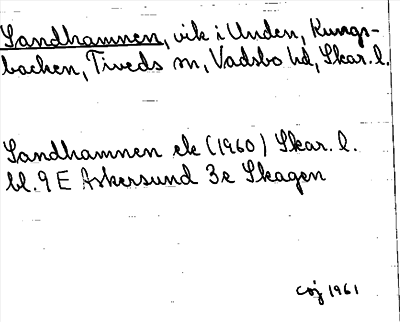 Sandhamnen, vik i Unden, Kungs-
backen, Tiveds sn, Vadsbo hd, Skar. l.
Sandhamnen ek (1960) Skar. l.
bl. 9 E Askersund 3e Skagen
1961